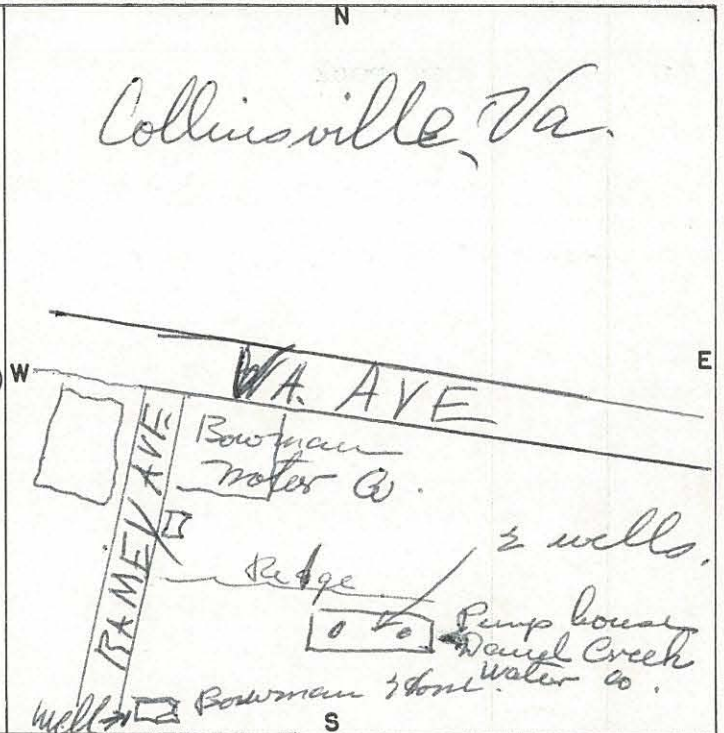 N
Collinsville, Va.
W
E
VA. AVE
RAMEY AVE.
Bowman
Motor Co.
2 wells.
Ridge
Pump house
Daniel Creek
Water Co.
well
Bowman
S